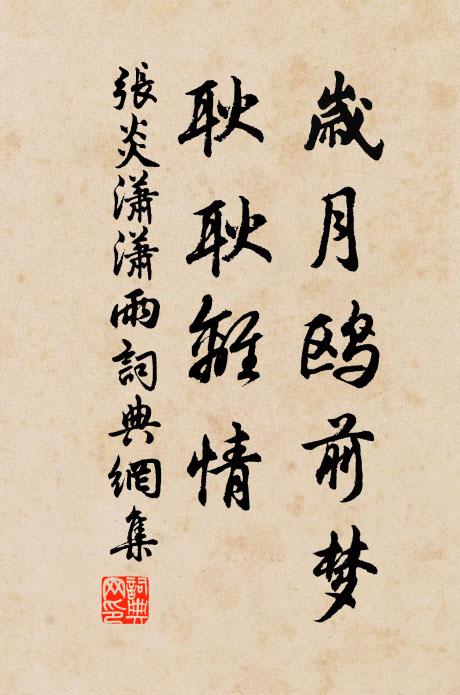 歲月鸥前梦
耿耿離情
張炎瀟瀟雨詞典網集
詞典
网印